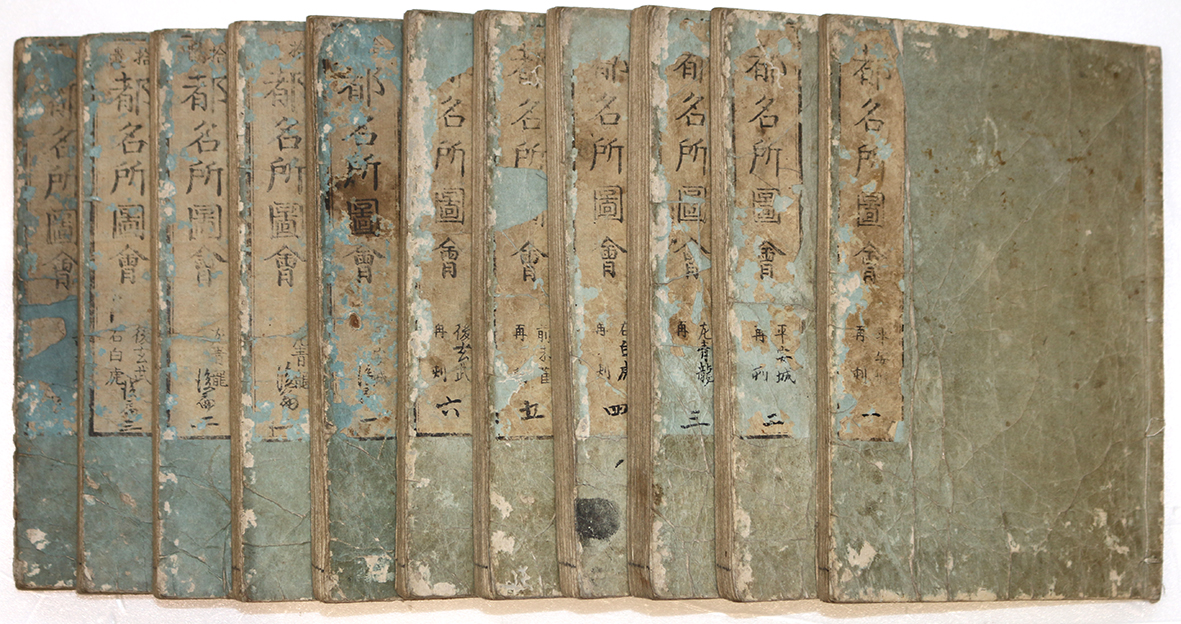 都名所圖會
再刻
一
都名所圖會
平安城
再刻
二
都名所圖會
左青龍
再
三
都名所圖會
右白虎
再刻
四
都名
所
會
前朱雀
再
五
名所圖會
後玄武
再刻
六
都名所圖會
一
拾
都名所圖會
青龍
一
拾
都名所圖會
青龍
二
拾遺
都名所圖會
後玄武
右白虎
三
都名所圖會